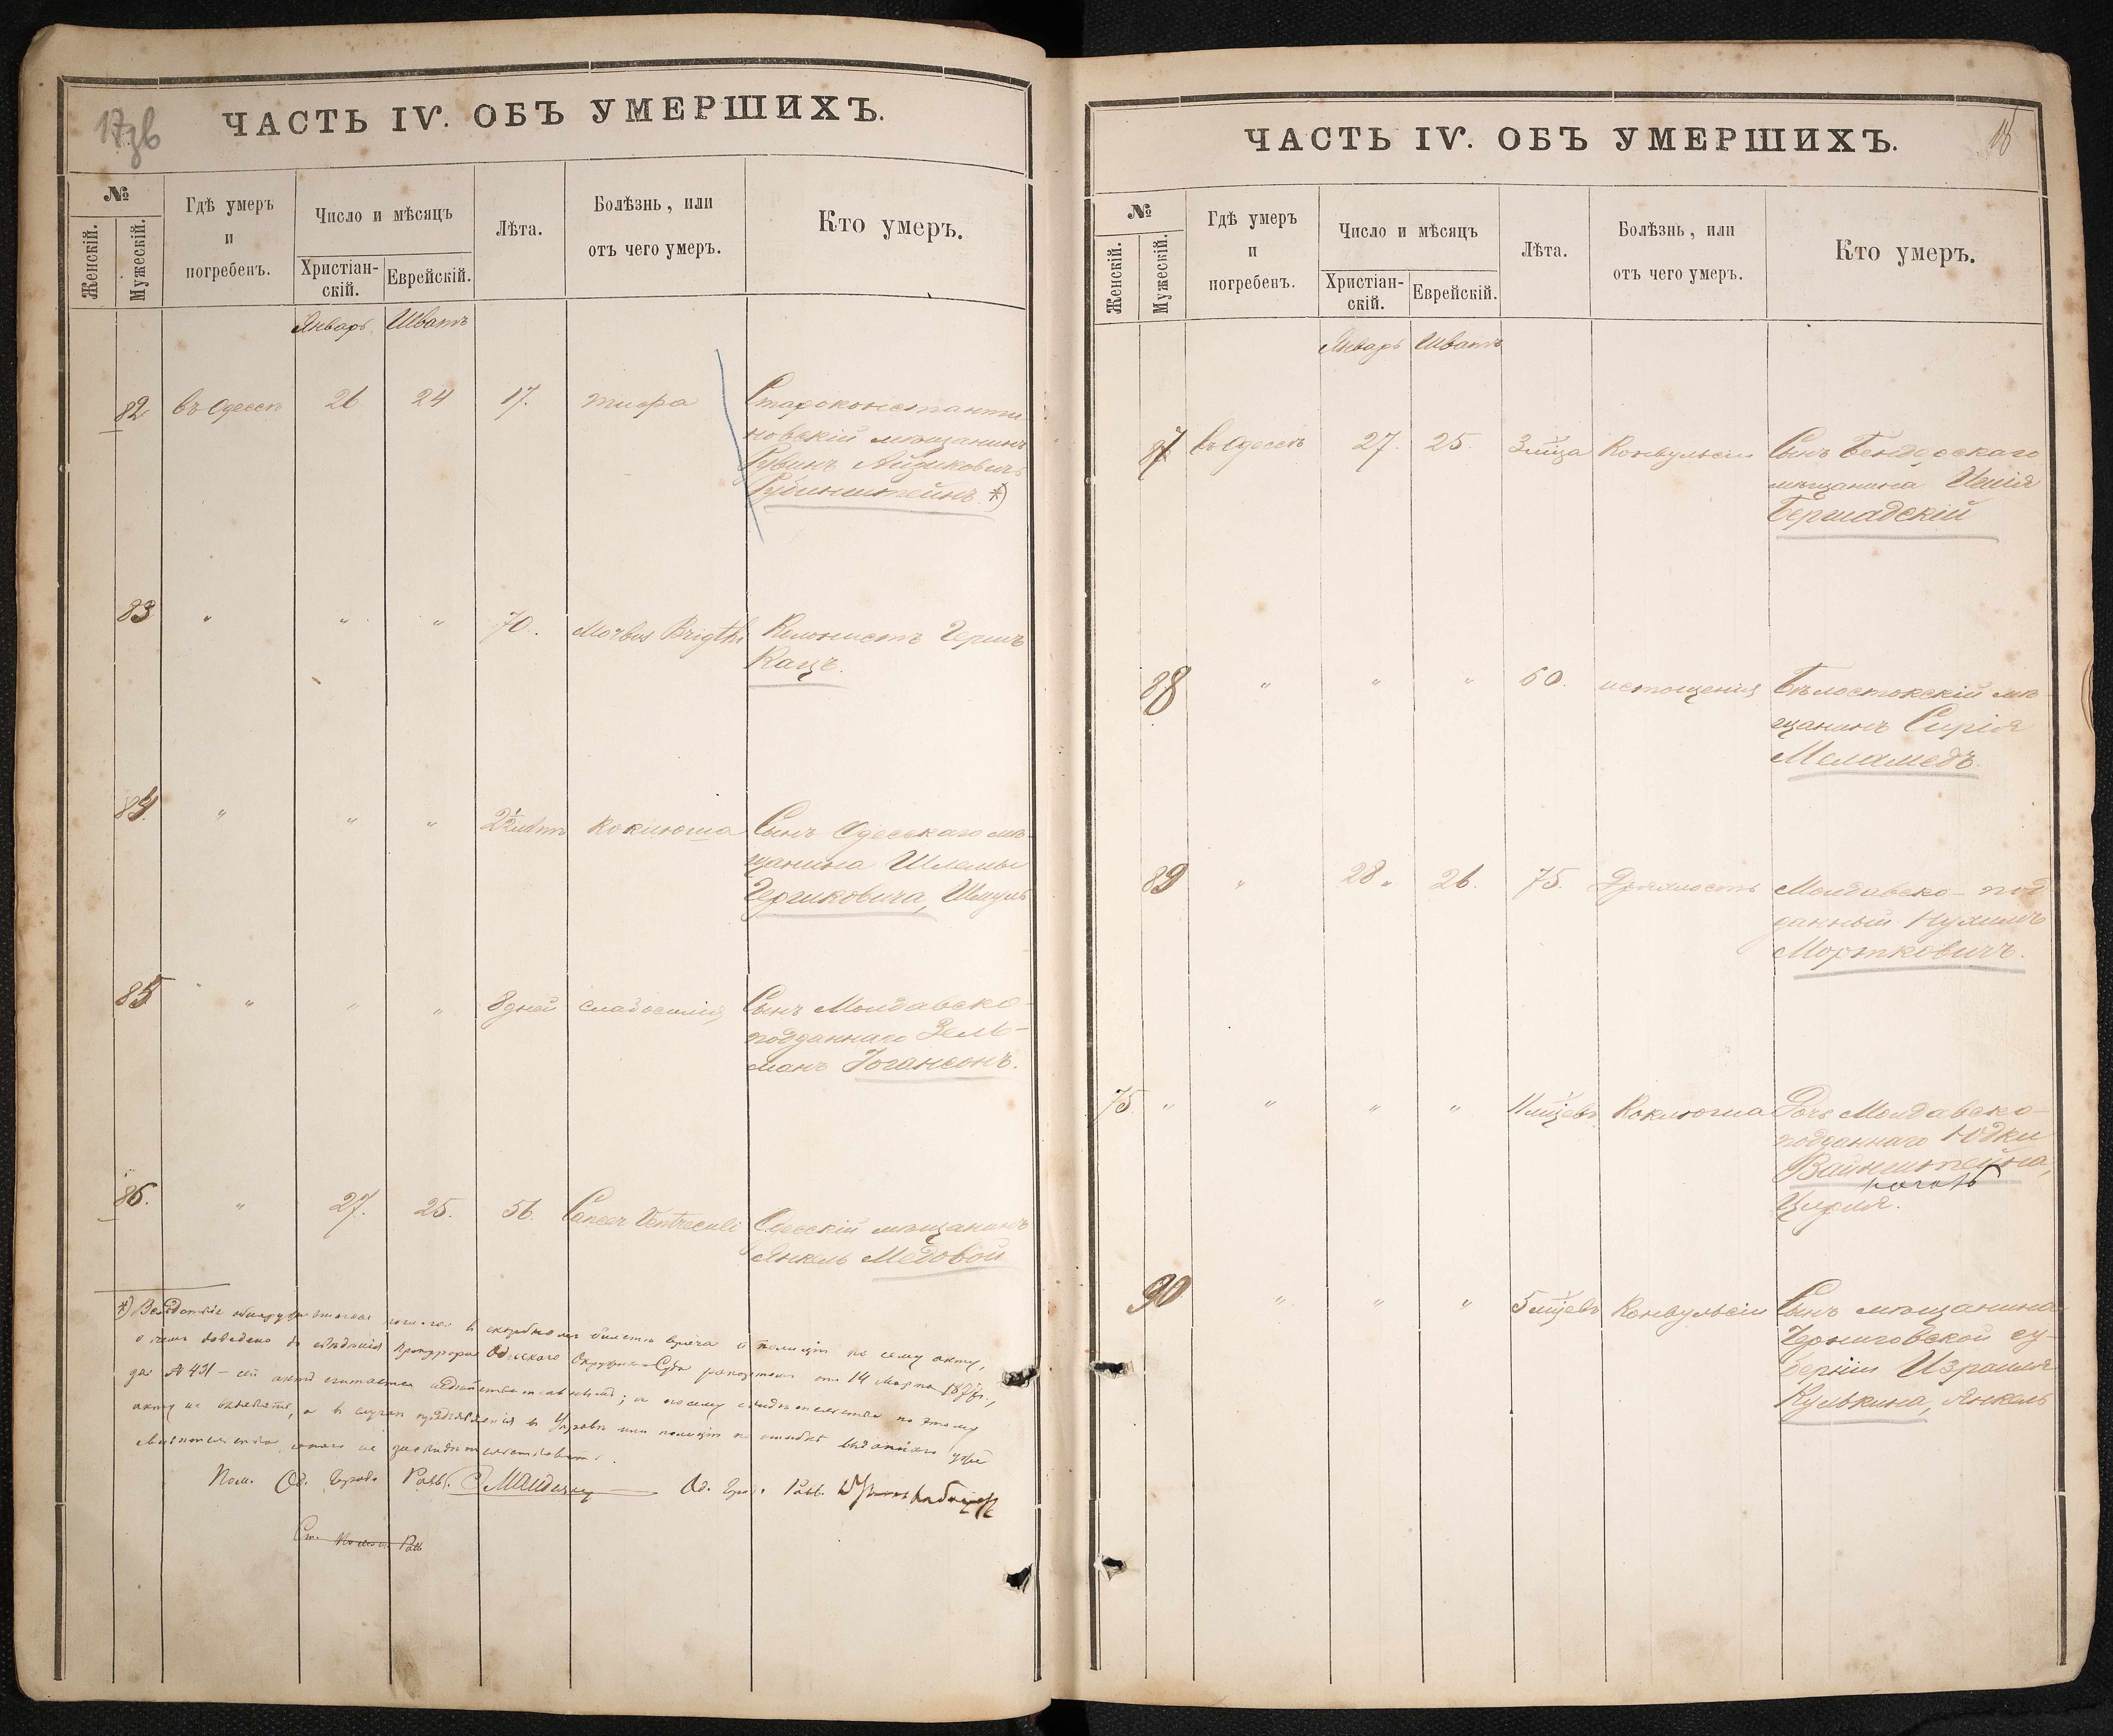 ЧАСТЬ IV. ОБЪ УМЕРШИХЪ.
№
Женскій.
Мужескій.
Гдѣ умеръ
и
погребенъ.
Число и мѣсяцъ
Христіан-
скій.
Еврейскій.
Лѣта.
Болѣзнь, или
отъ чего умеръ.
Кто умеръ.
Январь Шватъ
82 въ Одессѣ 26 24 17. тифа Староконстанти-
новскій мѣщанинъ
Рувинъ Айзиковичъ
Рубинштейнъ. *)
83 " " " 70. Morbus Brigthi Колонистъ Гершъ
Кацъ.
84 " " " 2½ лѣтъ коклюша Сынъ Одесскаго мѣ-
щанина Шлемы
Гершковича, Шмуль
85 " " " 8 дней слабосилія Сынъ Молдавско-
подданнаго Зель-
манъ Іогансонъ.
86. " 27. 25. 56. Cancer Ventriculi Одесскій мѣщанинъ
Янкель Медовой
*) Вслѣдствіе врача и полиціи по сему акту,
о чемъ доведено до свѣдѣнія Прокурора Одесскаго Окружн. Суда рапортомъ отъ 14 Марта
да № 431 — сей актъ считается недѣйствительнымъ; а посему свидѣтельства по этому
акту не выдавать, а въ случаѣ предъявленія въ Управѣ или полиціи по ошибкѣ выданнаго уже
свидѣтельства, онаго не засвидѣтельствовать.
Пом. Од. Город. Равв. Од. Гор. Равв.
Ст. Помощ. Равв
ЧАСТЬ IV. ОБЪ УМЕРШИХЪ.
№
Женскій.
Мужескій.
Гдѣ умеръ
и
погребенъ.
Число и мѣсяцъ
Христіан-
скій.
Еврейскій.
Лѣта.
Болѣзнь, или
отъ чего умеръ.
Кто умеръ.
Январь Шватъ
87 въ Одессѣ 27. 25. 3 мѣца Конвульсіи Сынъ Бендерскаго
мѣщанина Ишія
Бершадскій
88 " " " 60. истощенія Бѣлостокскій мѣ-
щанинъ Сирія
Меламедъ.
89 " 28 " 26. 75. Дряхлость Молдавско-под
данный Нухимъ
Мортковичъ.
75. " " " " 11 мѣцевъ Коклюша Дочь Молдавско-
подданнаго Юдки
Вайнштейна,
Цирля.
90 " " " 5 мѣцевъ Конвульсіи Сынъ мѣщанина
Черниговской гу-
берніи Израиля
Кулькина, Янкель